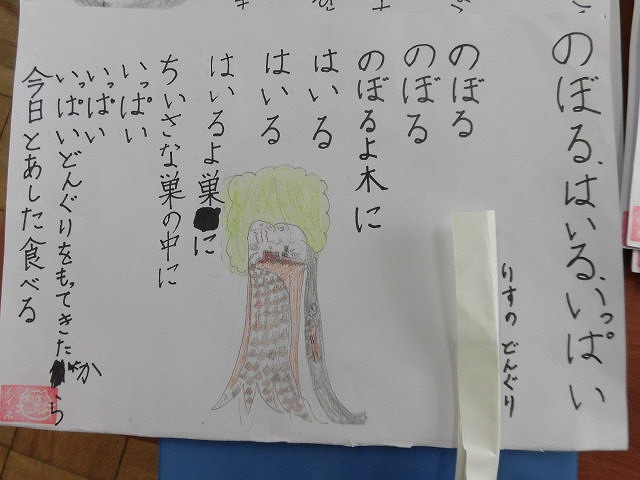 のぼる、はいる、いっぱい
りすの どんぐり
のぼる
のぼる
のぼるよ木に
はいる
はいる
はいるよ巣に
ちいさな巣の中に
いっぱい
いっぱい
いっぱいどんぐりをもってきたから
今日とあした食べる